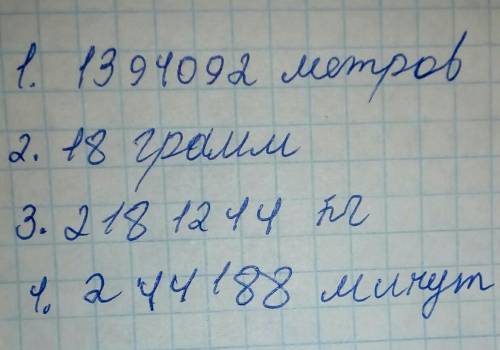 1. 1394092 метров
2. 18 грамм
3. 2181244 кг
4. 244188 минут